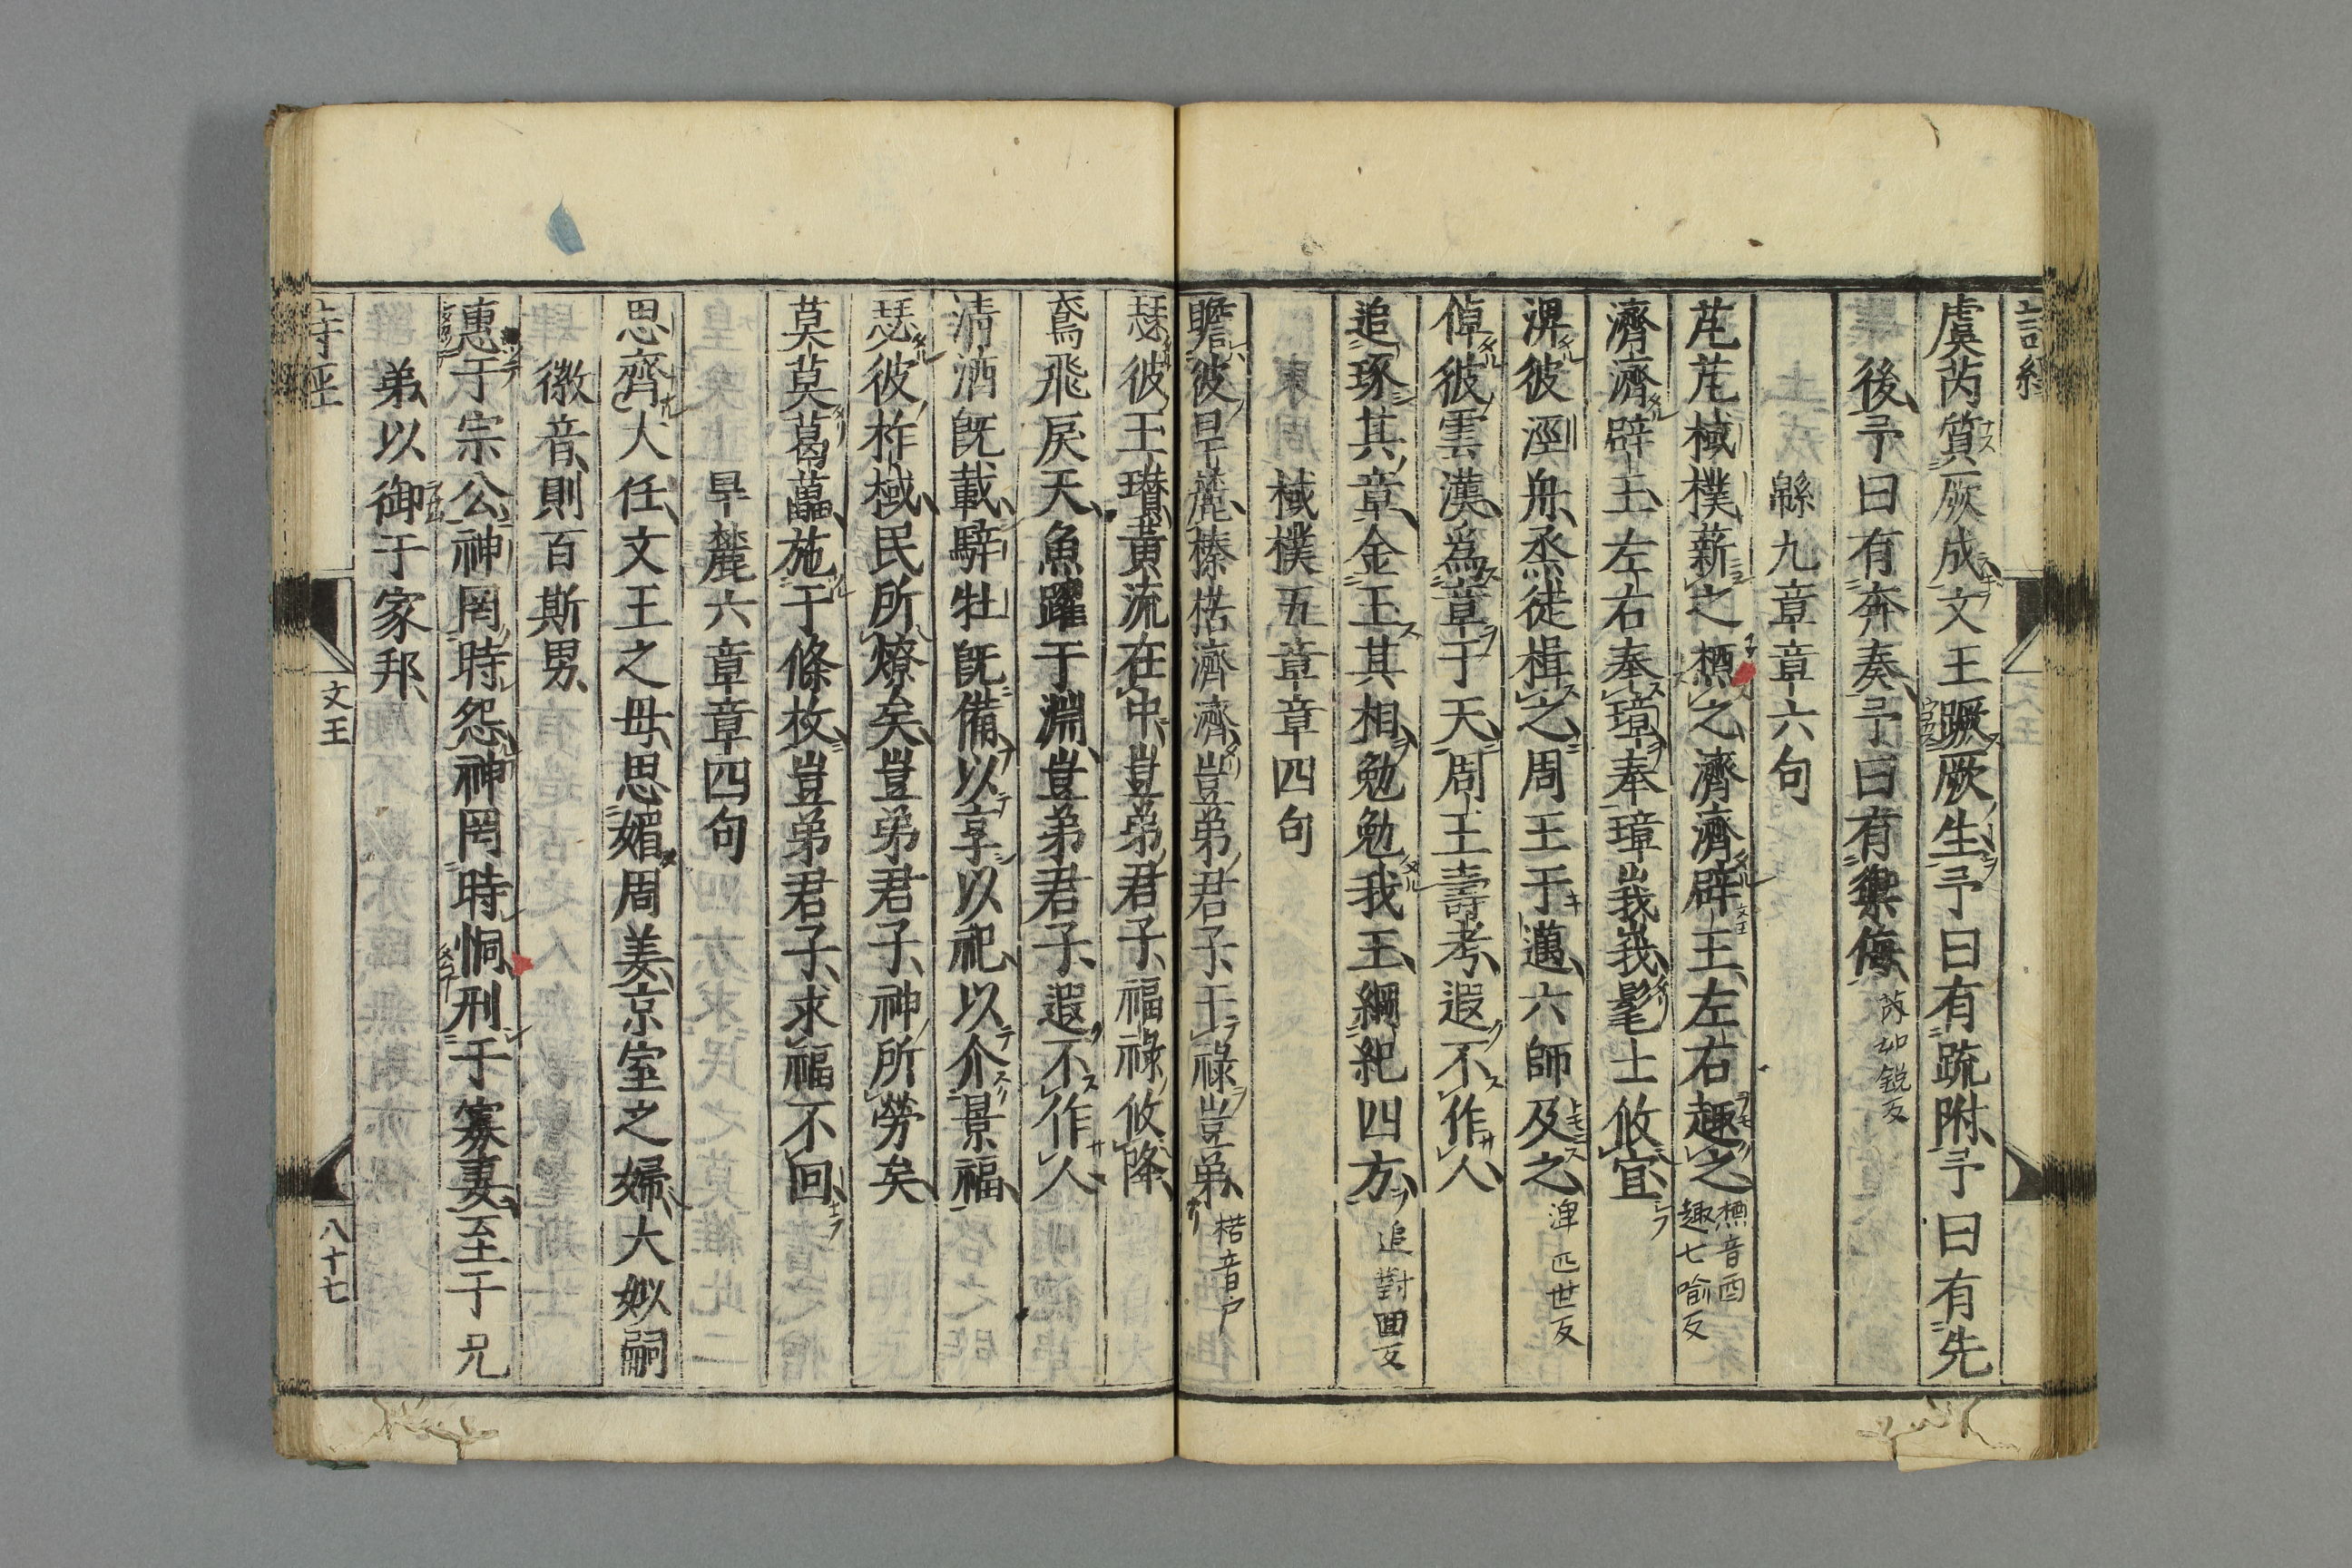 虞芮質厥成文王蹶厥生予曰有疏附予曰有先
後予曰有奔奏予曰有禦侮 芮如銳反
緜九章章六句
芃芃棫樸薪之槱之濟濟辟王左右趣之 槱音酉 趣七喻反
濟濟辟王左右奉璋奉璋峩峩髦士攸宜
淠彼涇舟烝徒楫之周王于邁六師及之 淠匹世反
倬彼雲漢爲章于天周王壽考遐不作人
追琢其章金玉其相勉勉我王綱紀四方 追對回反
棫樸五章章四句
瞻彼旱麓榛楛濟濟豈弟君子干祿豈弟 楛音户
瑟彼玉瓚黃流在中豈弟君子福祿攸降
鳶飛戾天魚躍于淵豈弟君子遐不作人
清酒旣載騂牡旣備以享以祀以介景福
瑟彼柞棫民所燎矣豈弟君子神所勞矣
莫莫葛藟施于條枚豈弟君子求福不回
旱麓六章章四句
思齊大任文王之母思媚周姜京室之婦大姒嗣
徽音則百斯男
惠于宗公神罔時怨神罔時恫刑于寡妻至于兄
弟以御于家邦
文王
八十七